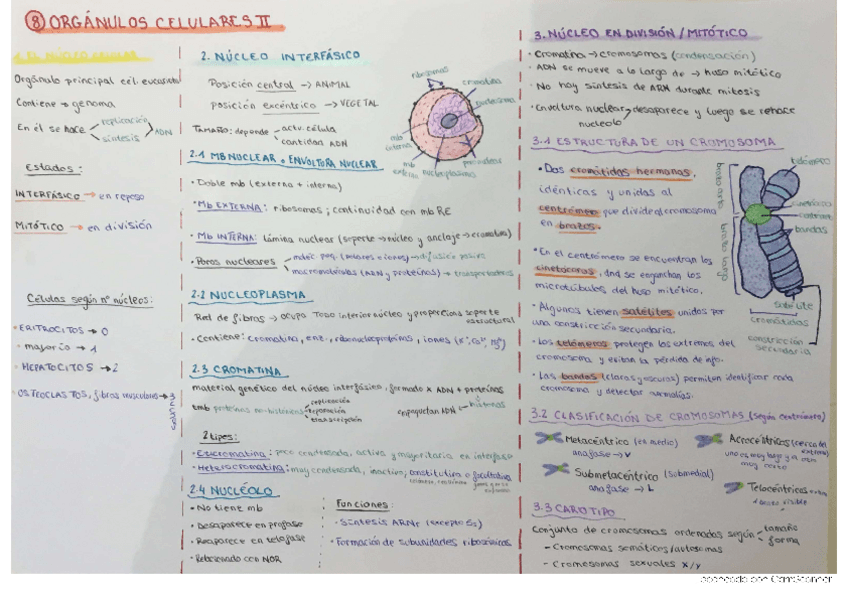 ⑧ ORGÁNULOS CELULARES II
1. EL NÚCLEO CELULAR
Orgánulo principal cél. eucariota
Contiene → genoma
En él se hace
replicación
síntesis
ADN
Estados:
INTERFÁSICO → en reposo
MITÓTICO → en división
Células según nº núcleos:
· ERITROCITOS → 0
· mayoría → 1
· HEPATOCITOS → 2
· OSTROCLASTOS, fibras musculares →
2. NÚCLEO INTERFÁSICO
Posición central → ANIMAL
posición excéntrico → VEGETAL
TAMAÑO: depende
activ. célula
cantidad ADN
ribosomas
cromatina
mb interna
mb externa
nucleoplasma
2.1 MB NUCLEAR o ENVOLTURA NUCLEAR
· Doble mb (externa + interna)
· Mb EXTERNA: ribosomas; continuidad con mb RE
· Mb INTERNA: lámina nuclear (soporte → núcleo y anclaje → cromatina)
· Poros nucleares
moléc. peq. → difusión pasiva
macromoléculas (ARN y proteínas) → transportadores
2.2 NUCLEOPLASMA
Red de fibras → ocupa TODO interior núcleo y proporciona soporte estructural
· Contiene: cromatina, enz., ribonucleoproteínas, iones
2.3 CROMATINA
material genético del núcleo interfásico, formado x ADN + proteínas
tmb proteínas no-histónicas
replicación
reparación
transcripción
empaquetan ADN ← histonas
2 tipos:
· Eucromatina: poco condensada, activa y mayoritaria en interfase
· Heterocromatina: muy condensada, inactiva, constitutiva o facultativa
2.4 NUCLÉOLO
· No tiene mb
· Desaparece en profase
· Reaparece en telofase
· Relacionado con NOR
Funciones:
· Síntesis ARNr (excepto 5s)
· Formación de subunidades ribosómicas
3. NÚCLEO EN DIVISIÓN / MITÓTICO
· Cromatina → cromosomas (condensación)
· ADN se mueve a lo largo de → huso mitótico
· No hay síntesis de ARN durante mitosis
· Envoltura nuclear
nucleolo
desaparece y luego se rehace
3.1 ESTRUCTURA DE UN CROMOSOMA
· Dos cromátidas hermanas,
idénticas y unidas al
centrómero que divide al cromosoma
en brazos.
· En el centrómero se encuentran los
cinetócoros, dnd se enganchan los
microtúbulos del huso mitótico.
· Algunos tienen satélites unidos por
una constricción secundaria.
· Los telómeros protegen los extremos del
cromosoma y evitan la pérdida de info.
· Las bandas (claras y oscuras) permiten identificar cada
cromosoma y detectar anomalías.
telómero
brazo corto
brazo largo
bandas
satélite
cromátidas
constricción secundaria
3.2 CLASIFICACIÓN DE CROMOSOMAS (según centrómero)
Metacéntrico (en medio)
anafase → V
Acrocéntricos (cerca del extremo)
uno es muy largo y el otro muy corto
Submetacéntrico (submedial)
anafase → L
Telocéntricos
3.3 CARIOTIPO
Conjunto de cromosomas ordenados según
tamaño
forma
- Cromosomas somáticos/autosomas
- Cromosomas sexuales X/Y
Escaneado con CamScanner